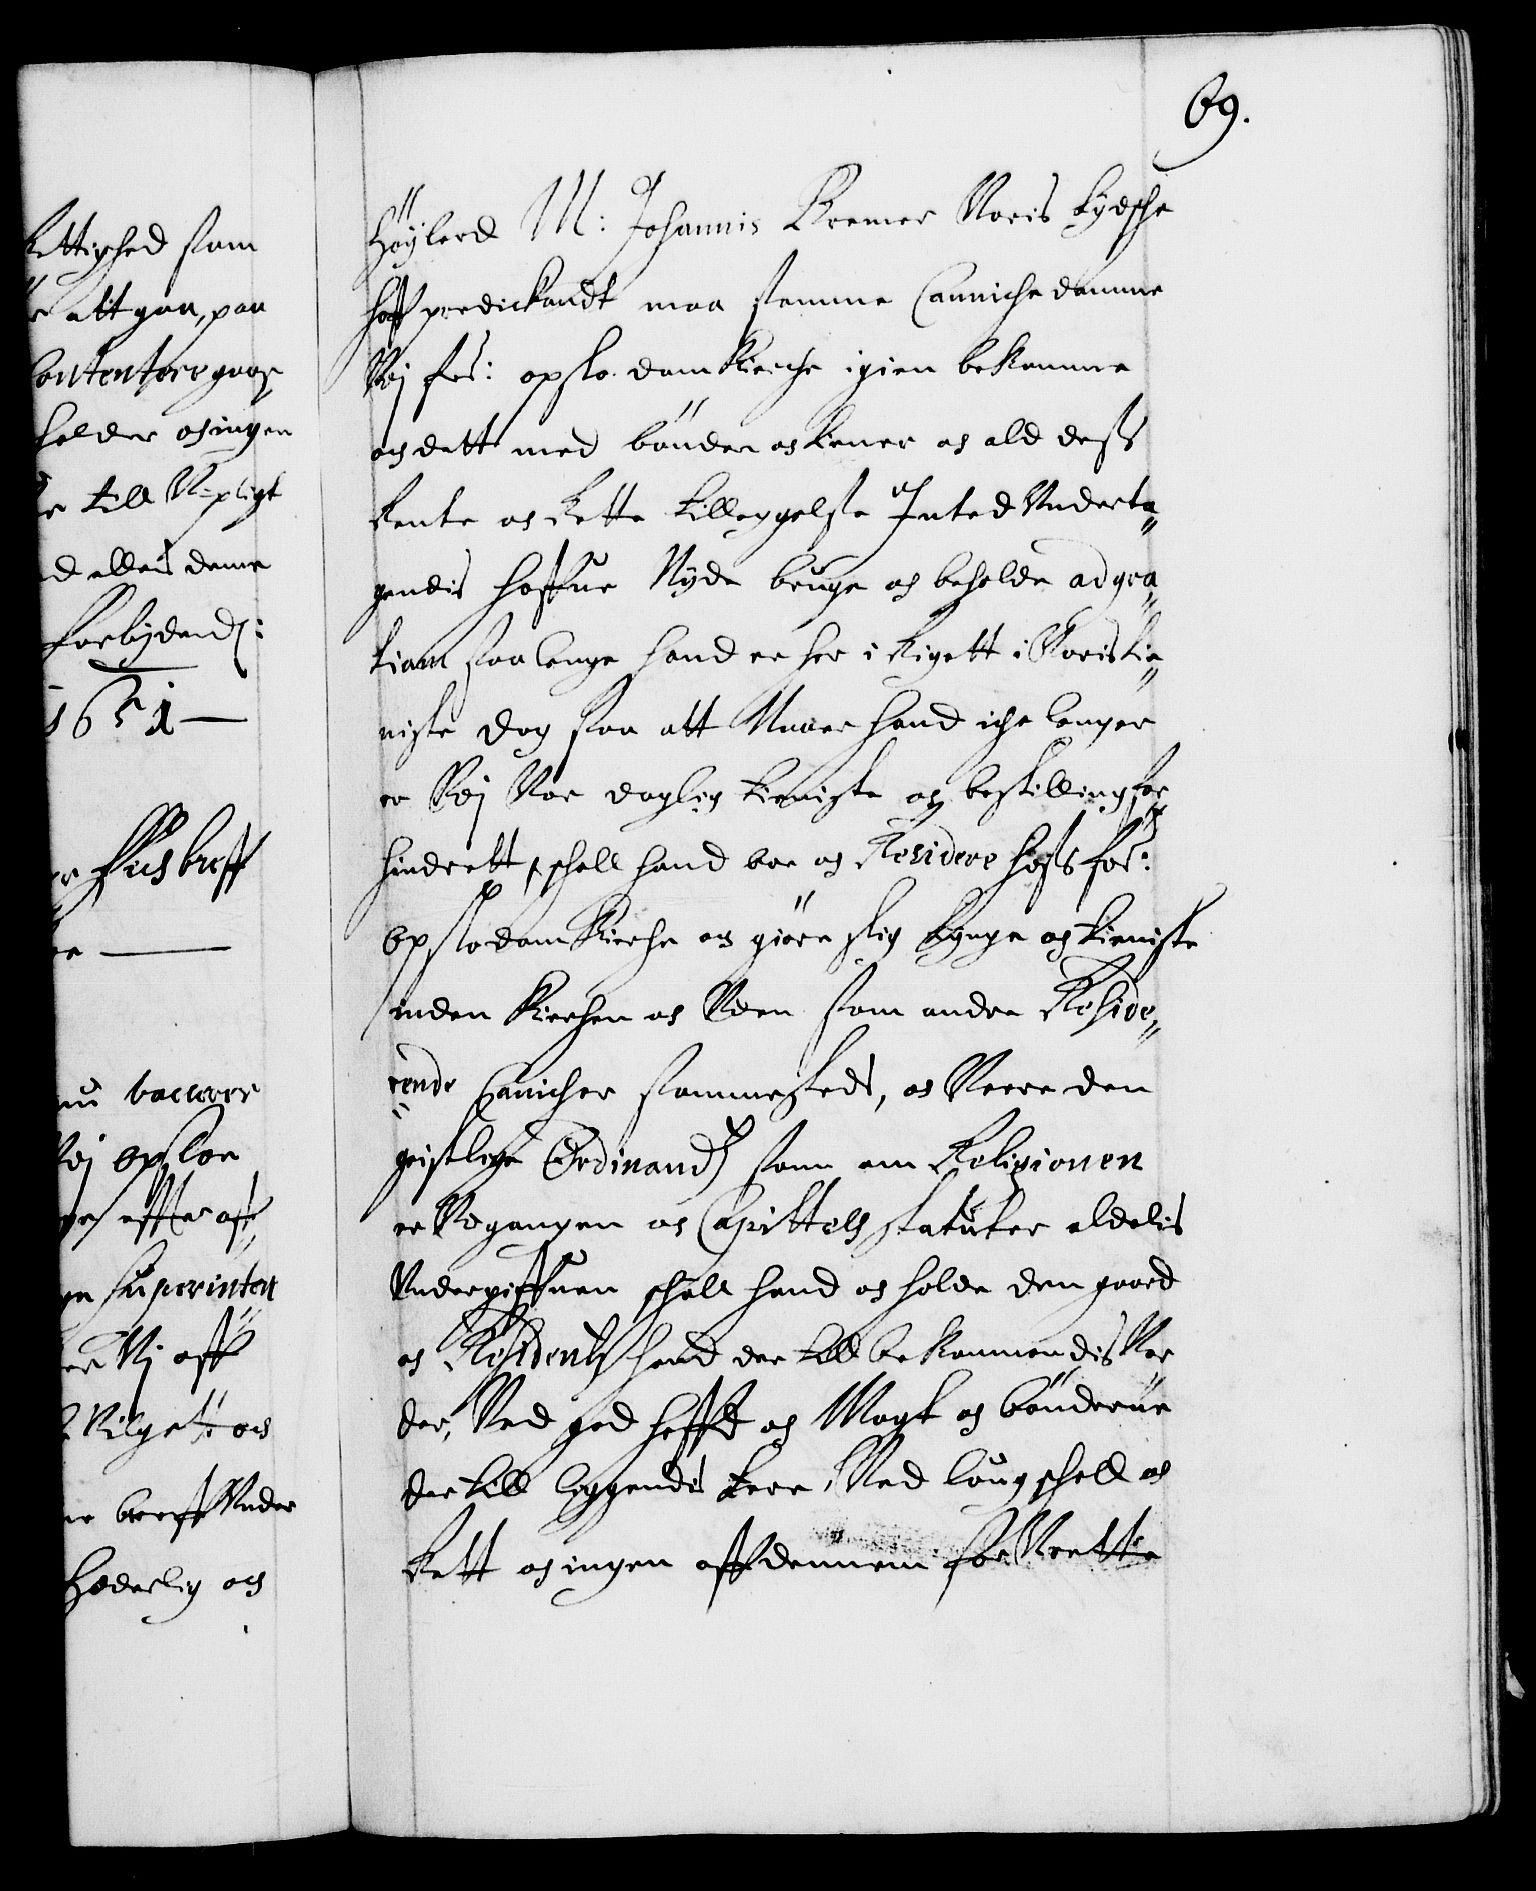 69.
Höylerd M: Johannis Kremer Voris tydsche
hoff predickandt maa samme Cannichedomme
Vdj for: opslo domkirche igien bekomme
og dett med bönder og tiener og ald dess
Rente og Rette tilleggelse Inted Vnderta„
gendis haffue Nyde bruge og beholde ad gra„
tiam saalenge hand er her i Rigett i Voris tie„
niste dog saa att Naar hand iche lenger
er Vdj Vor daglig tieniste og bestilling for
hindrett, schall hand boe og Residere hoss for:
Opslo domkirche og giöre slig tynge og tieniste
inden Kirchen og Vden som andre Reside„
rende Canicher sammesteds, og Verre den
geistlige Ordinandz som om Religionen
er Vdgangen og Capittels statuter aldelis
Vndergiffuen schall hand og holde den gaard
og Residentz hand der till bekommendis Vor
der, Ved god hefft og Magt og bönderne
der till liggendis Verre Ved loug schell og
Rett og ingen aff dennem forVrette
Rettighed som
att gaa, paa
Contentere giöre
holder og ingen
till Vpligt
d alleis denne
Forbydendis:
1651
Opsloe
Superinten
Vj aff
breff Vnder
Hæderlig og